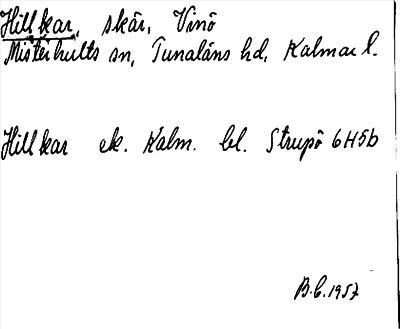 Hillkar, skär, Vinö
Misterhults sn, Tunaläns hd, Kalmar l.
Hillkar ek. Kalm. bl. Strupö 6H5b
B.C. 1957